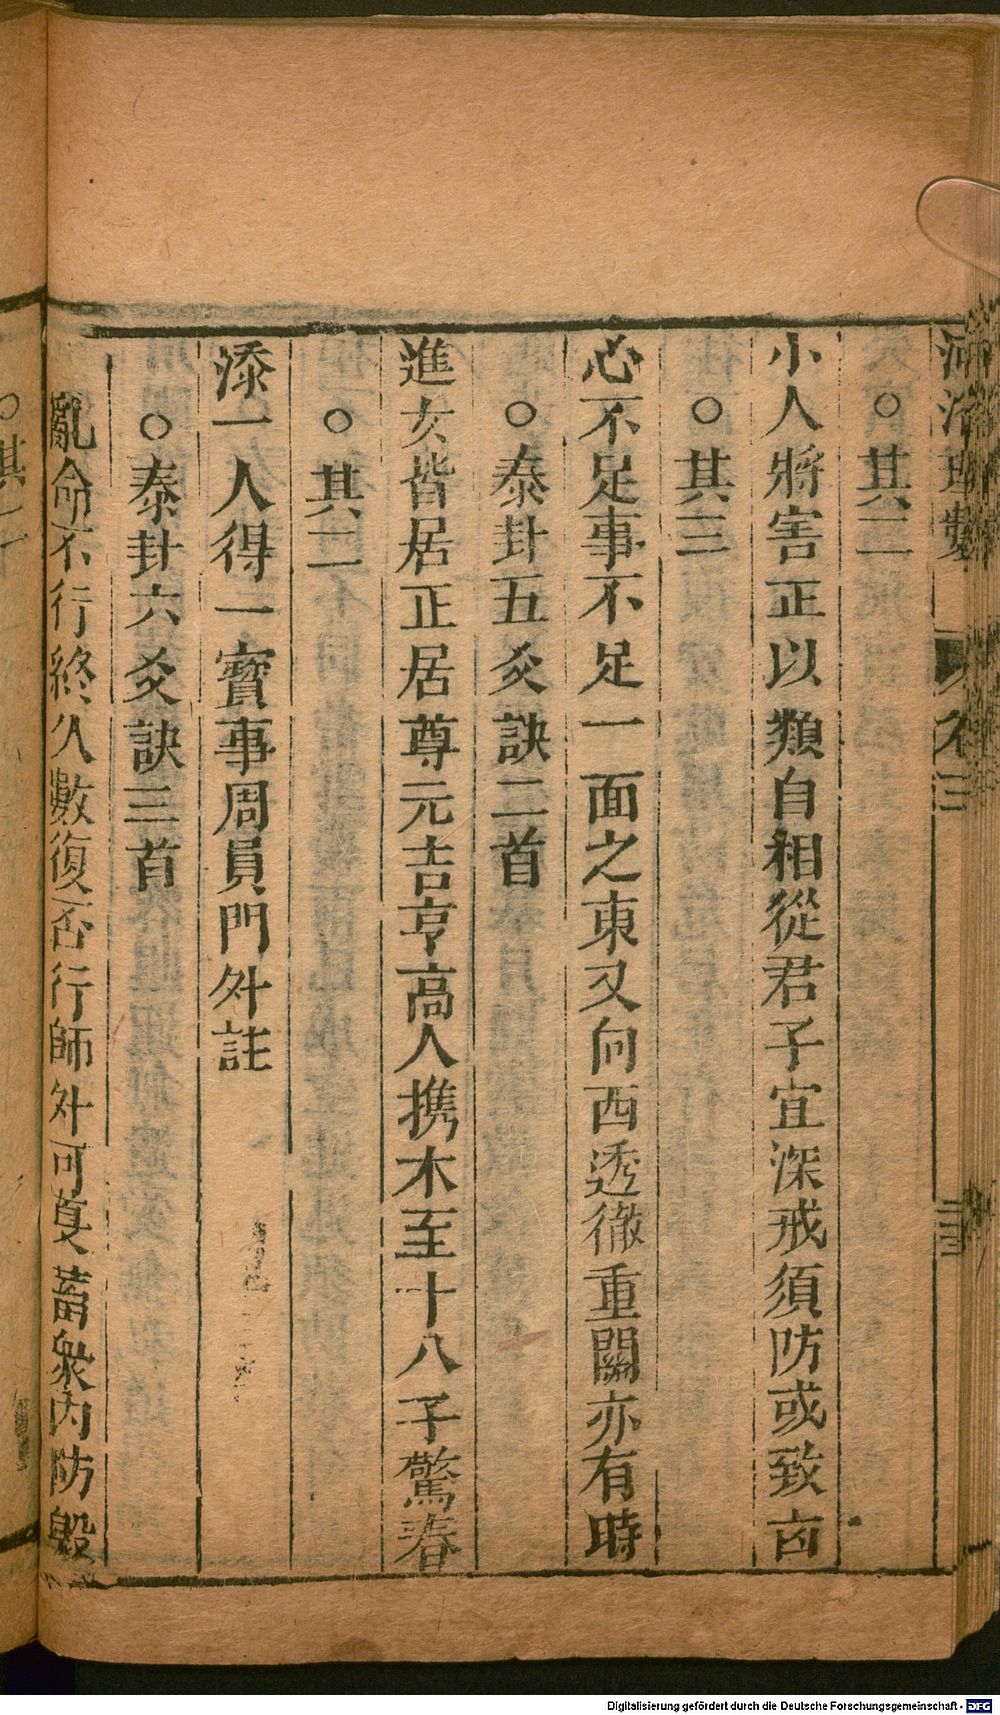 河洛理數 卷三 三三
○其二
小人將害正以類自相從君子宜深戒須防或致凶
○其三
心不足事不足一面之東又向西透徹重關亦有時
○泰卦五爻訣二首
進女皆居正居尊元吉亨高人携木至十八子驚春
○其二
添一人得一寶事周員門外註
○泰卦六爻訣三首
亂命不行終久數復否行師外可 蓄衆內防毀
○其二
Digitalisierung gefördert durch die Deutsche Forschungsgemeinschaft - DFG